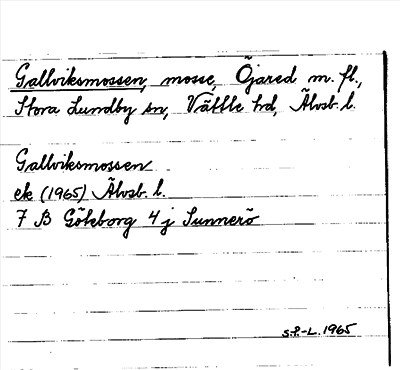 Gallviksmossen, mosse, Öjared m. fl.,
Stora Lundby sn, Vättle hd, Älvsb. l.
Gallviksmossen
ek (1965) Älvsb. l.
7 B Göteborg 4 j Sunnerö
S.P.-L. 1965